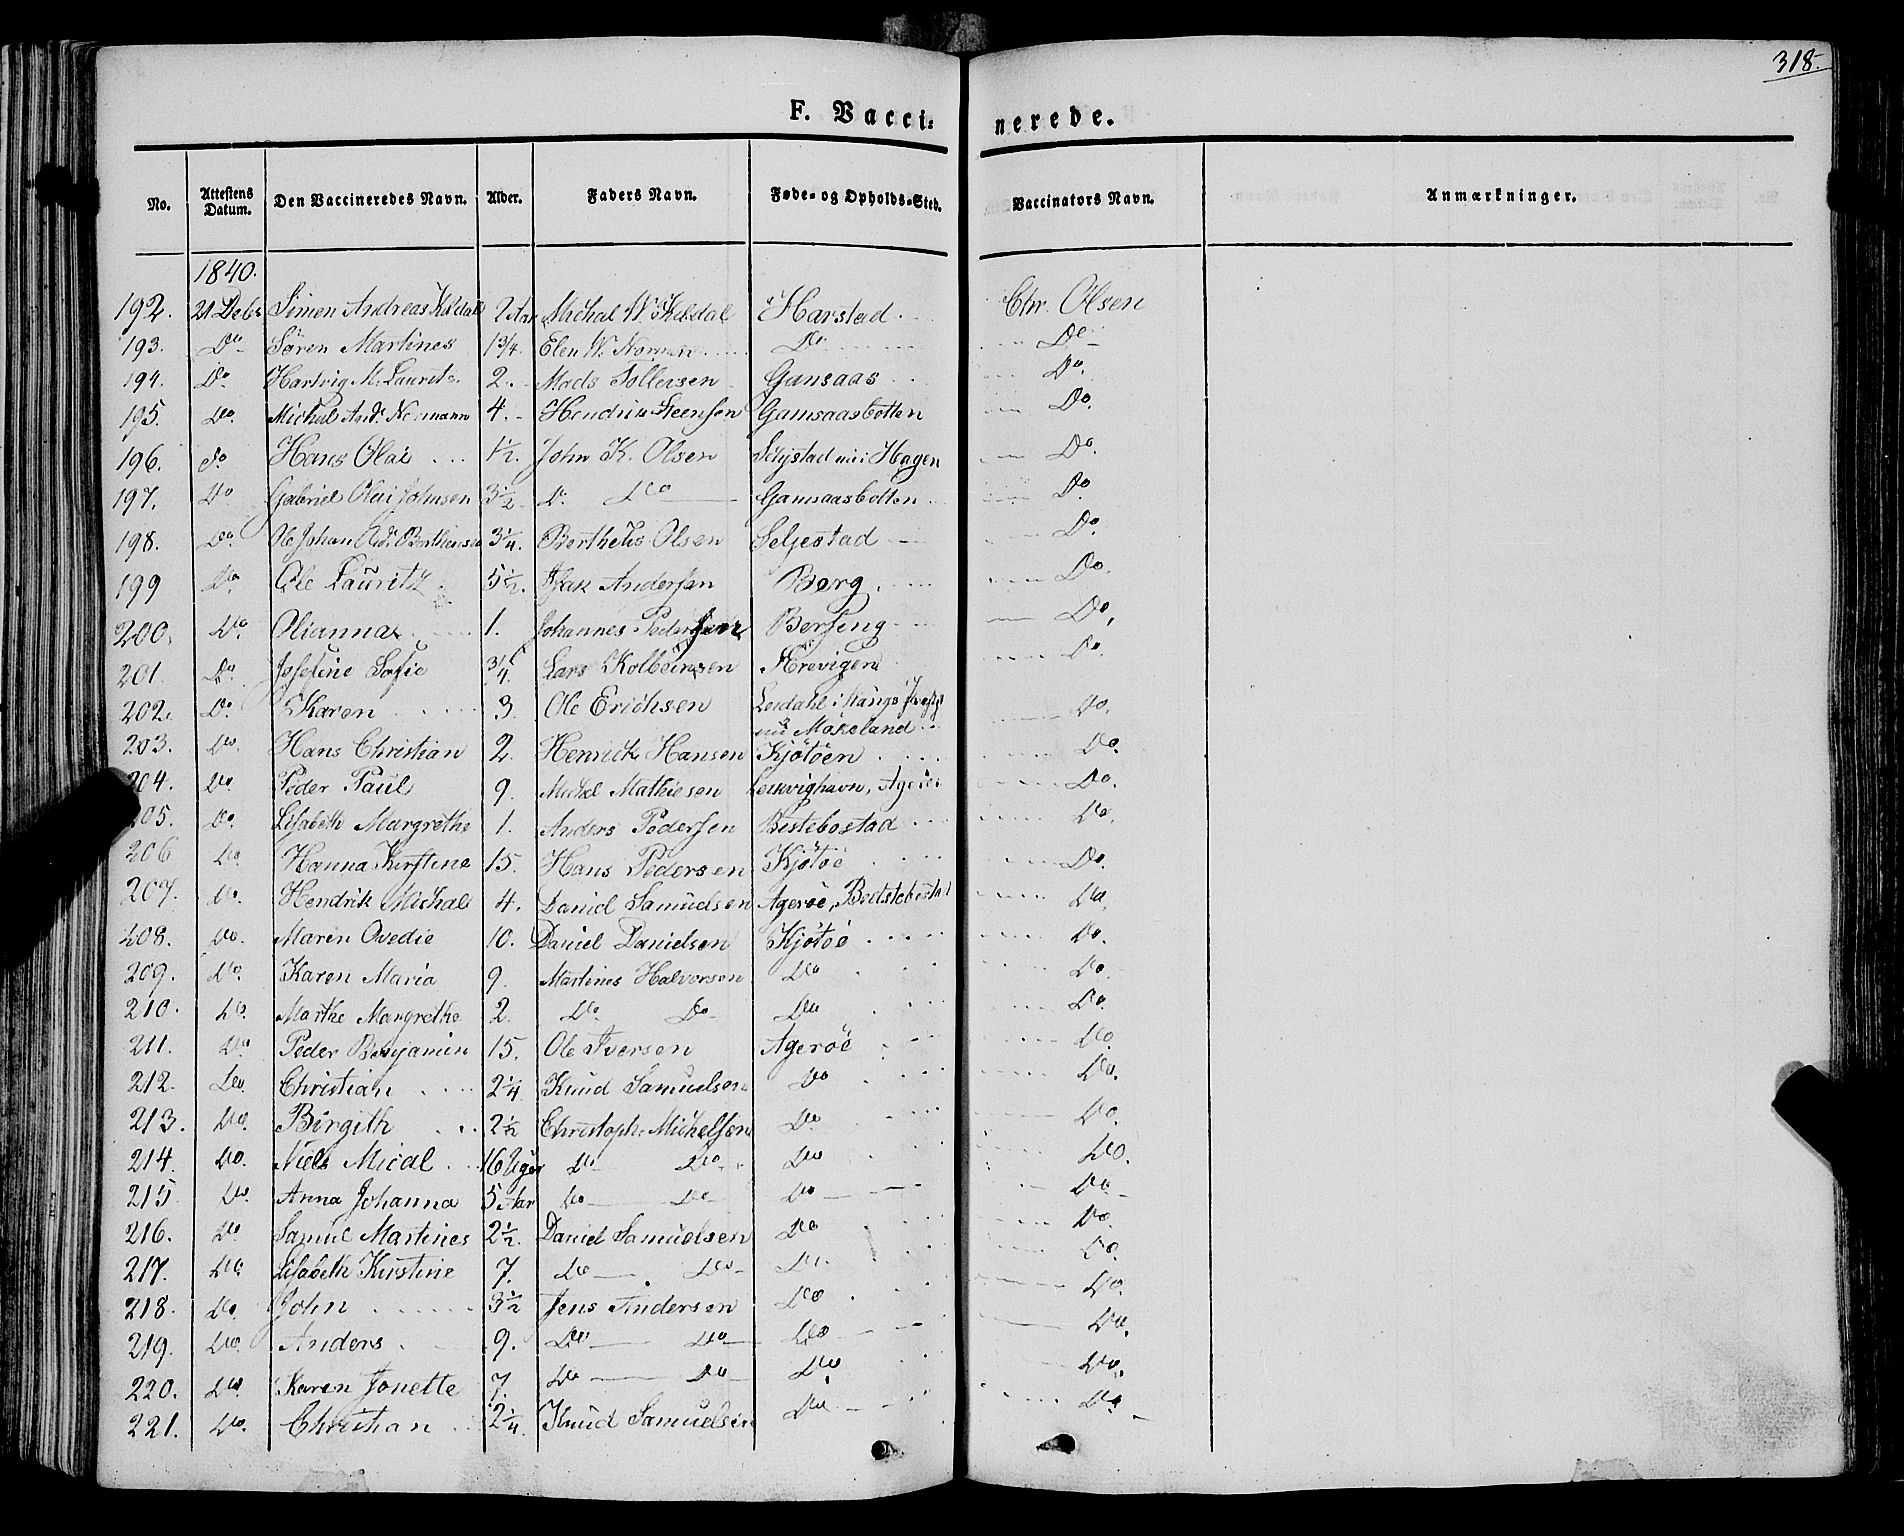 318.
F. Vaccinerede.
No. Attestens Datum. Den Vaccineredes Navn. Alder. Faders Navn. Føde- og Opholds-Sted. Vaccinators Navn. Anmærkninger.
1840.
192. 21 Debr Simen Andreas Kildal 2 Aar Michal W. Kildal Harstad. Chr. Olsen
193. Do Søren Martines 1 3/4. Elen W. Norman Do Do
194. Do. Hartvig M. Laurits 2. Mads Tollersen Gansaas Do.
195. Do. Michal And. Normann 4. Hendrik Steensen Gamsaasbotten Do.
196. Do Hans Olai 1 1/2. John K. Olsen Seljestad nu i Hagen Do.
197. Do Gabriel Olai Johnsen 3 1/2 Do Do Gamsaasbotten Do.
198. Do. Ole Johan And. Berthensen 3 1/4. Bertheus Olsen Seljestad Do
199 Do. Ole Lauritz 5 1/2. Isak Andersen Berg Do.
200. Do. Olianna 1. Johannes Pedersen Berseng Do.
201. Do. Josefine Sofie 3/4. Lars Kolbeinsen Ærevigen Do.
202. Do. Karen 3. Ole Erichsen Leidahl i Mangs
nu Måkeland Do.
203. Do. Hans Christian 2. Henrick Hansen Kjøtøen Do.
204. Do. Peder Paul 9. Michel Mathiesen Leikvighavn, Agerøe Do.
205. Do. Elisabeth Margrethe 1. Anders Pedersen Bestebostad Do.
206 Do. Hanna Kirstine 15. Hans Pedersen Kjøtøe Do.
207. Do. Hendrik Michael 4. Daniel Samuelsen Agerøe, Bestebostad Do.
208. Do. Maren Ovedie 10. Daniel Danielsen Kjøtøe Do.
209. Do. Karen Maria 9. Martines Halvorsen Do Do.
210. Do. Marthe Margrethe 2. Do Do Do Do.
211. Do Peder Benjamin 15. Ole Iversen Agerøe Do.
212. Do. Christian 2 1/4 Knud Samuelsen Do Do.
213. Do. Birgith 2 1/2 Christoph. Michelsen Do Do.
214. Do. Niels Mical 16 Uger Do Do Do Do.
215 Do. Anna Johanna 5 Aar Do Do Do Do
216. Do Samuel Martines 2 1/2. Daniel Samuelsen Do Do.
217. Do. Elisabeth Kirstine 7. Do Do Do. Do.
218. Do. John 3 1/2 Jens Andersen Do Do.
219. Do. Anders 9. Do Do Do Do.
220. Do. Karen Jonette 7. Do Do Do Do.
221. Do. Christian 2 1/4. Knud Samuelsen Do Do.